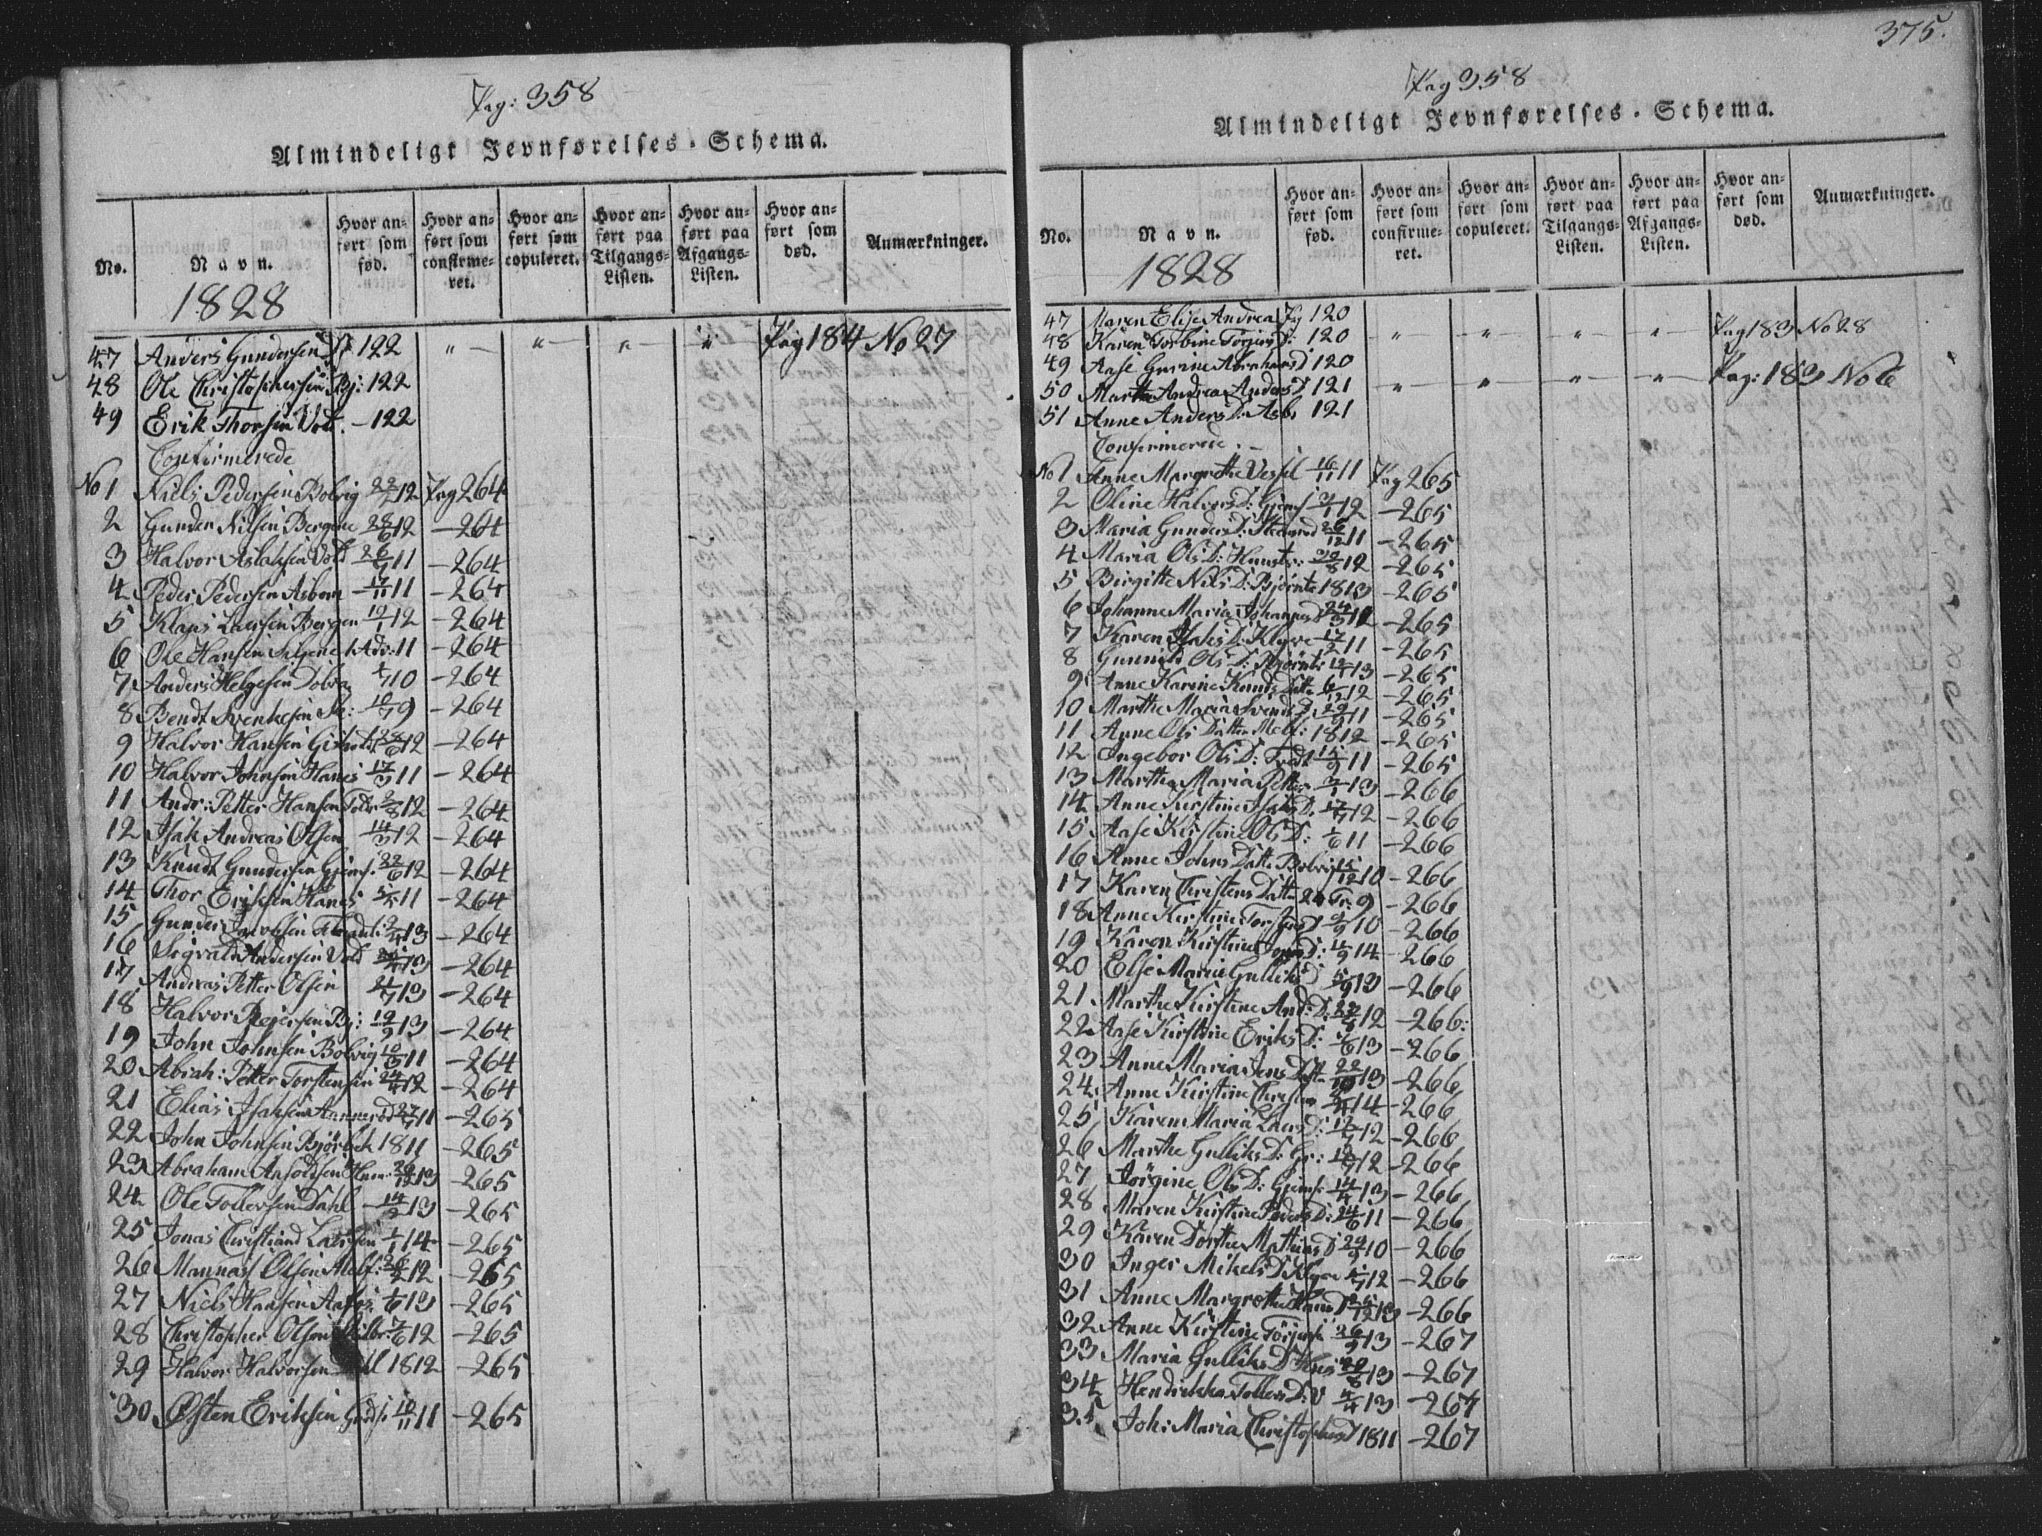 375.
Pag: 358
Almindeligt Jevnførelses-Schema.
No.
Navn.
Hvor anført som fød.
Hvor anført som confirmeret.
Hvor anført som copuleret.
Hvor anført paa Tilgangs-Listen.
Hvor anført paa Afgangs-Listen.
Hvor anført som død.
Anmærkninger.
1828
47 Anders Gundersen 122 " " " " Pag 184 No 27
48 Ole Christophersen Bj: 122
49 Erik Thorsen Vold. - 122
Confirmerede
No 1 Niels Pedersen Bolvig 22/2 12 Pag 264
2 Gunder Nilsen Bergene 28/6 12 - 264
3 Halvor Aslaksen Vold 26/9 11 - 264
4 Peder Pedersen Asbom 17/11 11 - 264
5 Klaus Larsen Bergen 12/1 12 - 264
6 Ole Hansen 1 Adv: 11 - 264
7 Anders Helgesen 10 - 264
8 Bendt Svenkesen 10/7 9 - 264
9 Halvor Hansen 12 - 264
10 Halvor Johnsen Hanes 17/3 11 - 264
11 Andr: Petter Hansen 12 - 264
12 Isak Andreas Olsen 14/3 12 - 264
13 Knudt Gundersen Gjems. 22/6 12 - 264
14 Thor Eriksen Hanes 11 - 264
15 Gunder Jacobsen 13 - 264
16 Sigvald Andersen Vold 13 - 264
17 Andreas Petter Olsen 13 - 264
18 Halvor Rejersen Bj: 19/9 13 - 264
19 John Johnsen Bolvig 10/3 11 - 264
20 Abrah: Petter Torstensen 24/4 12 - 264
21 Elias Isaksen 11 - 265
22 John Johnsen 1811 - 265
23 Abraham 13 - 265
24 Ole Tollefsen Dahl 14/2 13 - 265
25 Jonas Christian Larsen 1/1 14 - 265
26 Mannas Olsen Melf: 12 - 265
27 Niels Hansen 13 - 265
28 Christopher Olsen 12 - 265
29 Halvor Halvorsen 1812 - 265
30 Østen Eriksen 10/11 11 - 265
Pag 358
Almindeligt Jevnførelses-Schema.
No.
Navn.
Hvor anført som fød.
Hvor anført som confirmeret.
Hvor anført som copuleret.
Hvor anført paa Tilgangs-Listen.
Hvor anført paa Afgangs-Listen.
Hvor anført som død.
Anmærkninger.
1828
47 Maren Elise Andrea Pag 120
48 Karen Torbine Torjers D: 120 " " " " Pag 183 No 28
49 Aase Gurine Abrahams D 120
50 Marthe Andrea Anders D 121 " " " " Pag: 183 No 6
51 Anne Anders D: Asb: 121
Confirmerede. -
No 1 Anne Margrethe Vessel 16/1 11 Pag 265
2 Oline Halvors D: Gjems 12 - 265
3 Maria Gunders D: 26/12 11 - 265
4 Maria Ols D: 12 - 265
5 Birgitte Nils D: Bjørnt: 1813 - 265
6 Johanne Maria Johannes D 24/3 12 - 265
7 Karen Isaks D: Klyve 17/2 11 - 265
8 Gunnild Ols D: Bjørnt: 13 - 265
9 Anne Karine Knuds Datt: 6/12 12 - 265
10 Marthe Maria Svends D: 29/9 11 - 265
11 Anne Ols Datter Melf: 1812 - 265
12 Ingebor Ols D: 15/9 11 - 265
13 Marthe Maria Petter 13 - 266
14 Anne Kirstine Isaks D: 17/7 12 - 266
15 Aase Kirstine Ols D: 11 - 266
16 Anne Johns Datt: Bolvig 15/12 10 - 266
17 Karen Christens Datter 24 Tr: 9 - 266
18 Anne Kirstine Torstens D 10 - 266
19 Karen Kirstine D: 14 - 266
20 Else Marie Gulliks D 13 - 266
21 Marthe Kirstine And: D: 12 - 266:
22 Aase Kirstine Eriks D: 13 - 266
23 Anne Maria Jens Datt: 22/10 13 - 266
24 Anne Kirstine Christen 14 - 266
25 Karen Maria Lars D: 12 - 266
26 Marthe Gulliks D: Gr: 12 - 266
27 Jørgine Ols D: Gjems: 14/4 13 - 266
28 Maren Kirstine Peders D: 24/6 11 - 266
29 Karen Dorthe Mathias D 29/9 10 - 266
30 Inger Mikels D Klyve 12 - 266
31 Anne Margrethe D 13 - 266
32 Anne Kirstine 26/9 13 - 267
33 Maria Gulliks D 13 - 267
34 Hendrikka Tollefs D: V 4/4 13 - 267
35 Joh: Maria Christophers D 1811 - 267